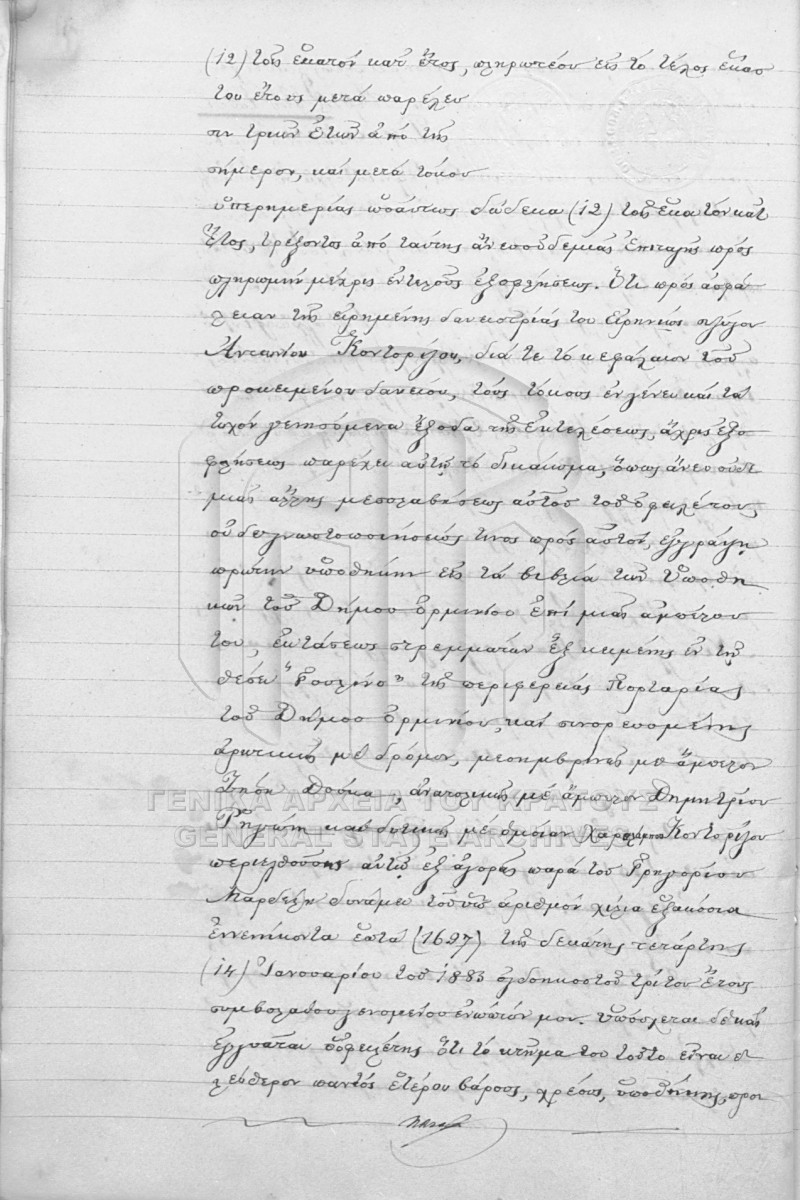 (12) τοῖς ἑκατόν κατ' ἔτος, πληρωτέον εἰς τό τέλος ἑκάσ
του ἔτους μετά παρέλευ
σιν τριῶν ἐτῶν ἀπό τῆς
σήμερον, καί μετά τόκου
ὑπερημερίας ὡσαύτως δώδεκα (12) τοῖς ἑκατόν κατ'
ἔτος, τρέξοντος ἀπό ταύτης ἄνευ οὐδεμιᾶς ἐπιταγῆς πρός
πληρωμήν μέχρις ἐντελοῦς ἐξοφλήσεως. Ὅτι πρός ἀσφά
λειαν τῆς εἰρημένης δανειστρίας του Εἰρηνίως συζύγου
Ἀντωνίου Κοντορίζου, διά τε τό κεφάλαιον τοῦ
προκειμένου δανείου, τούς τόκους ἐν γένει καί τά
τυχόν γεννησόμενα ἔξοδα τῆς ἐκτελέσεως, ἄχρις ἐξο
φλήσεως παρέχει αὐτῇ τό δικαίωμα, ὅπως ἄνευ οὐδε
μιᾶς ἄλλης μεσολαβήσεως αὐτοῦ τοῦ ὀφειλέτου,
οὐδέ γνωστοποιήσεώς τινος πρός αὐτόν, ἐγγράψῃ
πρώτην ὑποθήκην εἰς τά βιβλία τῶν Ὑποθη
κῶν τοῦ Δήμου Ὁρμινίου ἐπί μιᾶς ἀμπέλου
του, ἐκτάσεως στρεμμάτων ἕξ κειμένης ἐν τῇ
θέσει "Γουλινό" τῆς περιφερείας Πορταριᾶς
τοῦ Δήμου Ὁρμινίου, καί συνορευομένης
ἀρκτικῶς μέ δρόμον, μεσημβρινῶς μέ ἄμπελον
Ζήση Δούκα, ἀνατολικῶς μέ ἄμπελον Δημητρίου
Ῥηγιώτη καί δυτικῶς μέ ὁμοίαν Κοντορίζου
περιελθούσης αὐτῷ ἐξ ἀγορᾶς παρά τοῦ Γρηγορίου
Μαρδέλη δυνάμει τοῦ ὑπ' ἀριθμόν χίλια ἑξακόσια
ἐννενήκοντα ἑπτά (1697) τῆς δεκάτης τετάρτης
(14) Ἰανουαρίου τοῦ 1883 ὀγδοηκοστοῦ τρίτου ἔτους
συμβολαίου γενομένου ἐνώπιόν μου. Ὑπόσχεται δέ καί
ἐγγυᾶται ὁ ὀφειλέτης ὅτι τό κτῆμα του τοῦτο εἶναι ἐ
λεύθερον παντός ἑτέρου βάρους, χρέους, ὑποθήκης, προι
ΓΕΝΙΚΑ ΑΡΧΕΙΑ ΤΟΥ ΚΡΑΤΟΥΣ
GENERAL STATE ARCHIVES